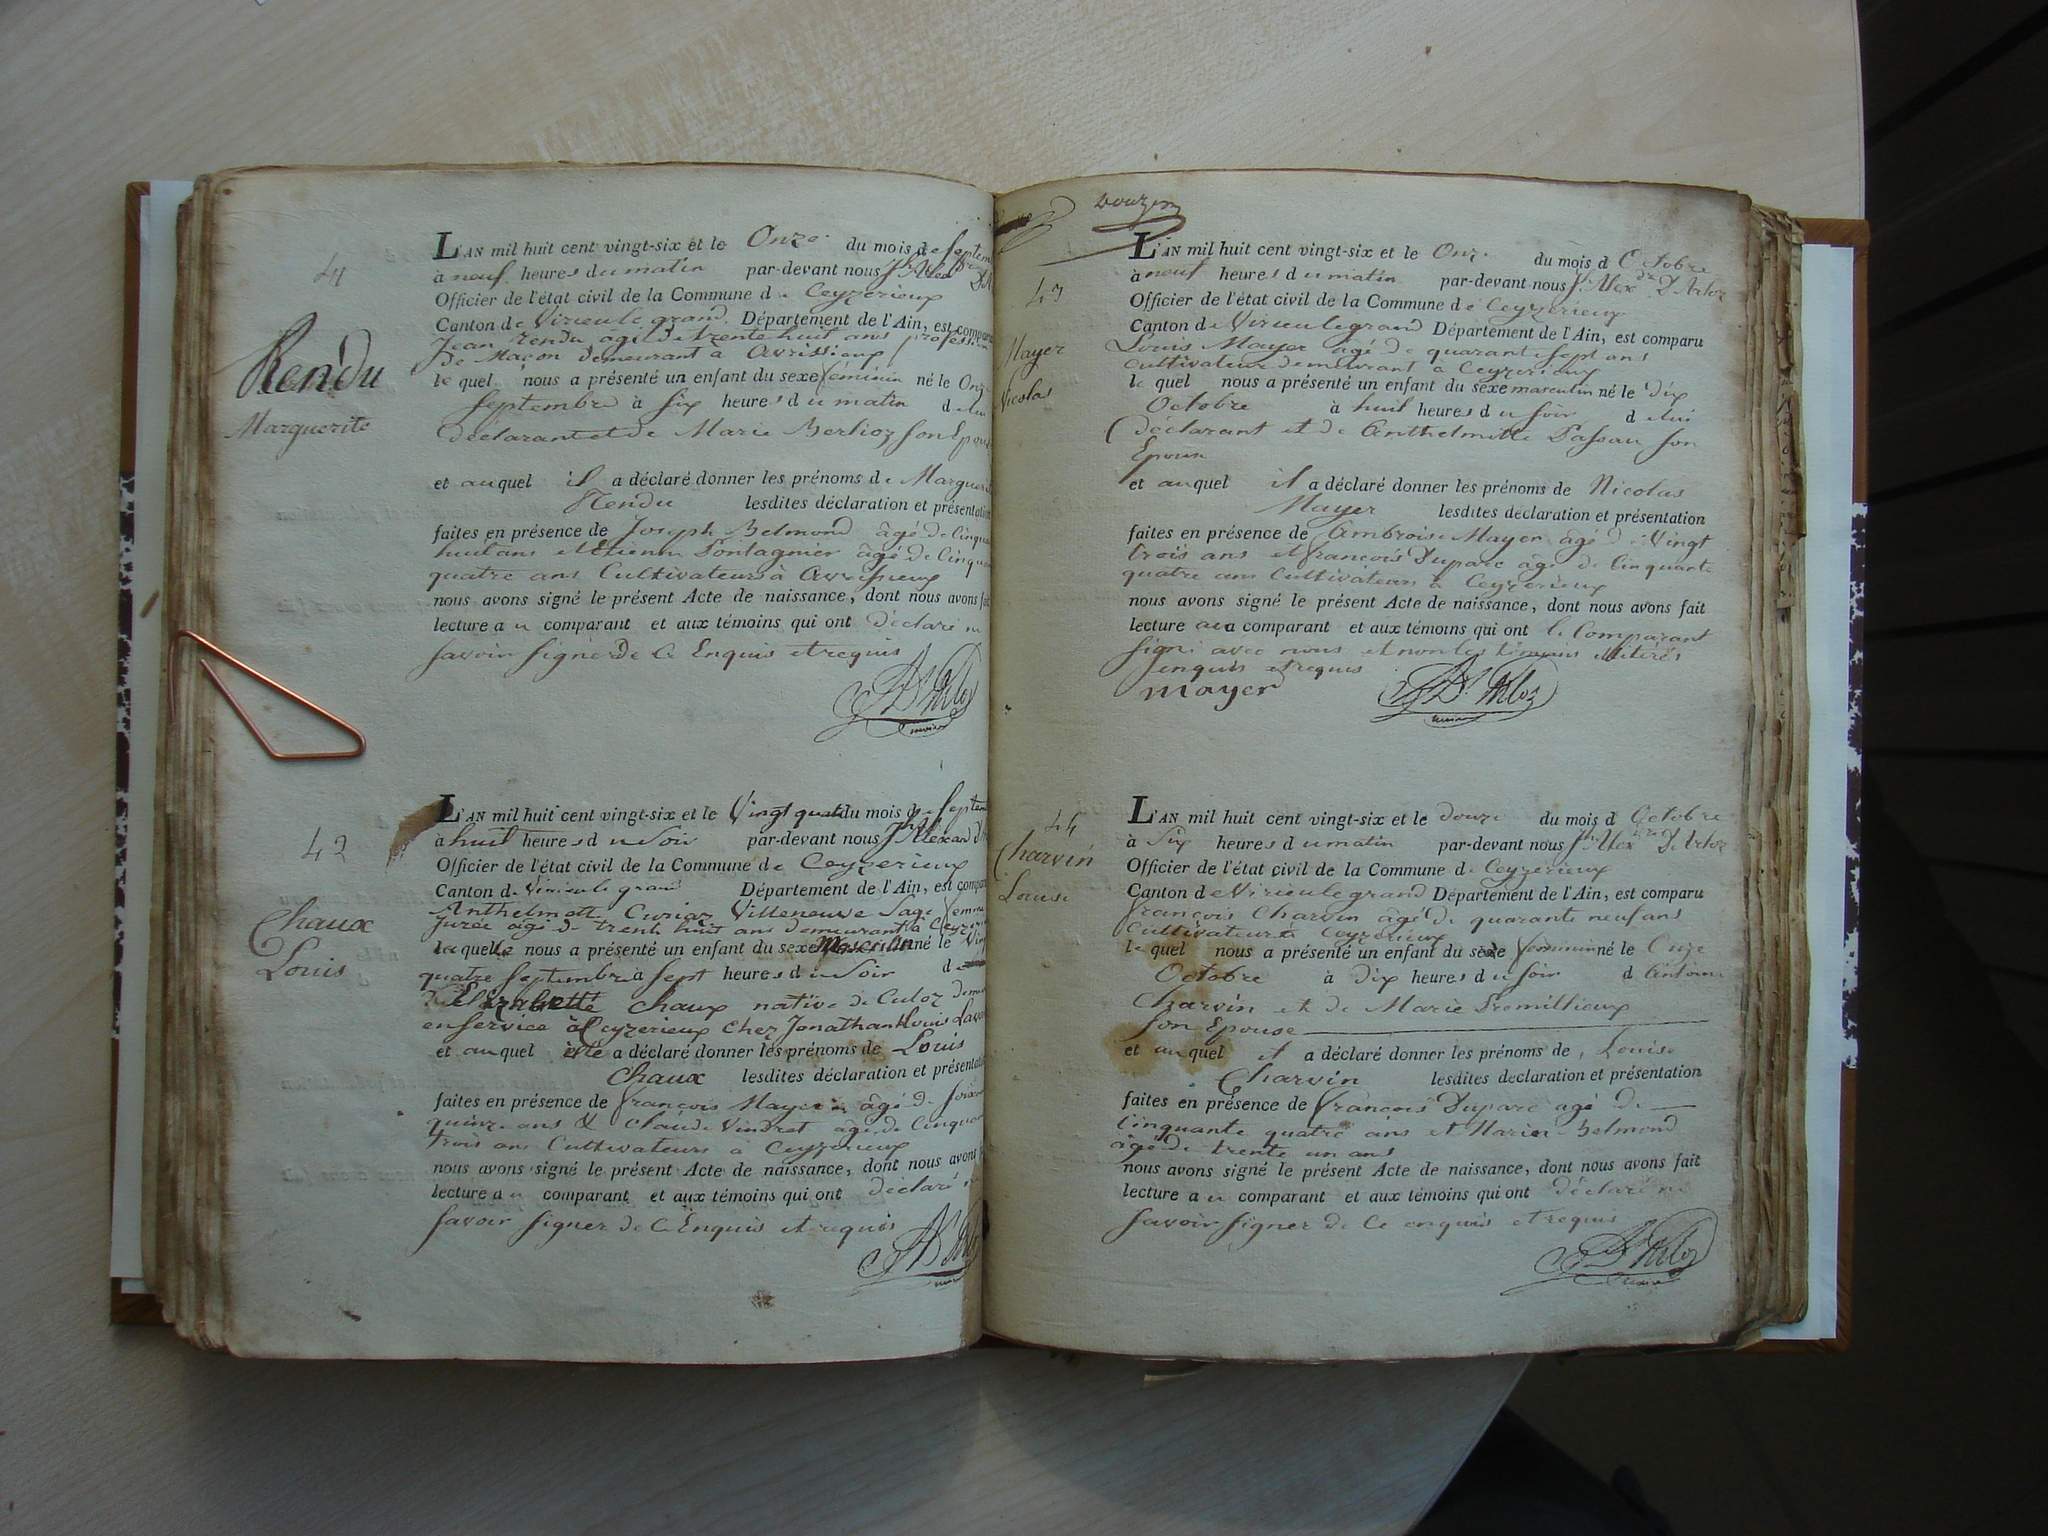 41
Rendu
Marguerite
L'AN mil huit cent vingt-six et le Onze du mois de Septem
à neuf heures du matin par-devant nous Jh Alex
Officier de l'état civil de la Commune de Ceyzerieux
Canton de Virieu le grand Département de l'Ain, est compa
Jean Rendu agé de trente huit ans profession
de Maçon demeurant à Avrissieux
lequel nous a présenté un enfant du sexe féminin né le Onze
Septembre à six heures du matin de lui
déclarant et de Marie Berlioz son Epouse
et auquel il a déclaré donner les prénoms de Marguerit
Rendu lesdites déclaration et présentation
faites en présence de Joseph Belmond âgé de Cinqua
huit ans et Etienne Pontagnier âgé de Cinqua
quatre ans Cultivateurs à Avrissieux
nous avons signé le présent Acte de naissance, dont nous avons fait
lecture au comparant et aux témoins qui ont déclaré ne
savoir signer de ce Enquis et requis
42
Chaux
Louis
L'AN mil huit cent vingt-six et le Vingt quat du mois de Septem
à huit heures du Soir par-devant nous Jh Alexan
Officier de l'état civil de la Commune de Ceyzerieux
Canton de Virieu le grand Département de l'Ain, est compa
Anthelmette Curiaz Villeneuve Sage femme
Jurée âgé de trente huit ans demeurant à Ceyzerie
laquelle nous a présenté un enfant du sexe Masculin né le Vingt
quatre Septembre à Sept heures du Soir d
Elizabette Chaux native de Culoz
en service à Ceyzerieux chez Jonathan Louis
et auquel elle a déclaré donner les prénoms de Louis
Chaux lesdites déclaration et présentat
faites en présence de François Mayer âgé de
quinze ans & Claude Vindret age de Cinqua
trois ans Cultivateurs a Ceyzerieux
nous avons signé le présent Acte de naissance, dont nous avons
lecture au comparant et aux témoins qui ont déclaré ne
savoir signer de Ce Enquis et requis
43
Mayer
Nicolas
L'AN mil huit cent vingt-six et le Onze du mois d Octobre
à neuf heures du matin par-devant nous Jh Alexdre D'Arloz
Officier de l'état civil de la Commune de Ceyzerieux
Canton de Virieu le grand Département de l'Ain, est comparu
Louis Mayer âgé de quarante sept ans
Cultivateur demeurant a Ceyzerieux
lequel nous a présenté un enfant du sexe masculin né le dix
Octobre à huit heures du soir de lui
déclarant et de Anthelmette Passeau son
Epouse
et auquel il a déclaré donner les prénoms de Nicolas
Mayer lesdites déclaration et présentation
faites en présence de Ambroise Mayer âgé de Vingt
trois ans et françois Duparc âgé de Cinquante
quatre ans Cultivateurs à Ceyzerieux
nous avons signé le présent Acte de naissance, dont nous avons fait
lecture au comparant et aux témoins qui ont le Comparant
signé avec nous et non les témoins illitérés
enquis et requis
mayer
44
Charvin
Louise
L'AN mil huit cent vingt-six et le douze du mois d Octobre
à Six heures du matin par-devant nous Jh Alexdre D'Arloz
Officier de l'état civil de la Commune de Ceyzerieux
Canton de Virieu le grand Département de l'Ain, est comparu
François Charvin âgé de quarante neuf ans
Cultivateur à Ceyzerieux
lequel nous a présenté un enfant du sexe feminin né le Onze
Octobre à Dix heures du soir d Antoine
Charvin et de Marie Premillieux
son Epouse
et auquel il a déclaré donner les prénoms de Louise
Charvin lesdites déclaration et présentation
faites en présence de François Duparc agé de
Cinquante quatre ans et Marin Belmond
âgé de trente un ans
nous avons signé le présent Acte de naissance, dont nous avons fait
lecture au comparant et aux témoins qui ont déclaré ne
savoir signer de Ce enquis et requis